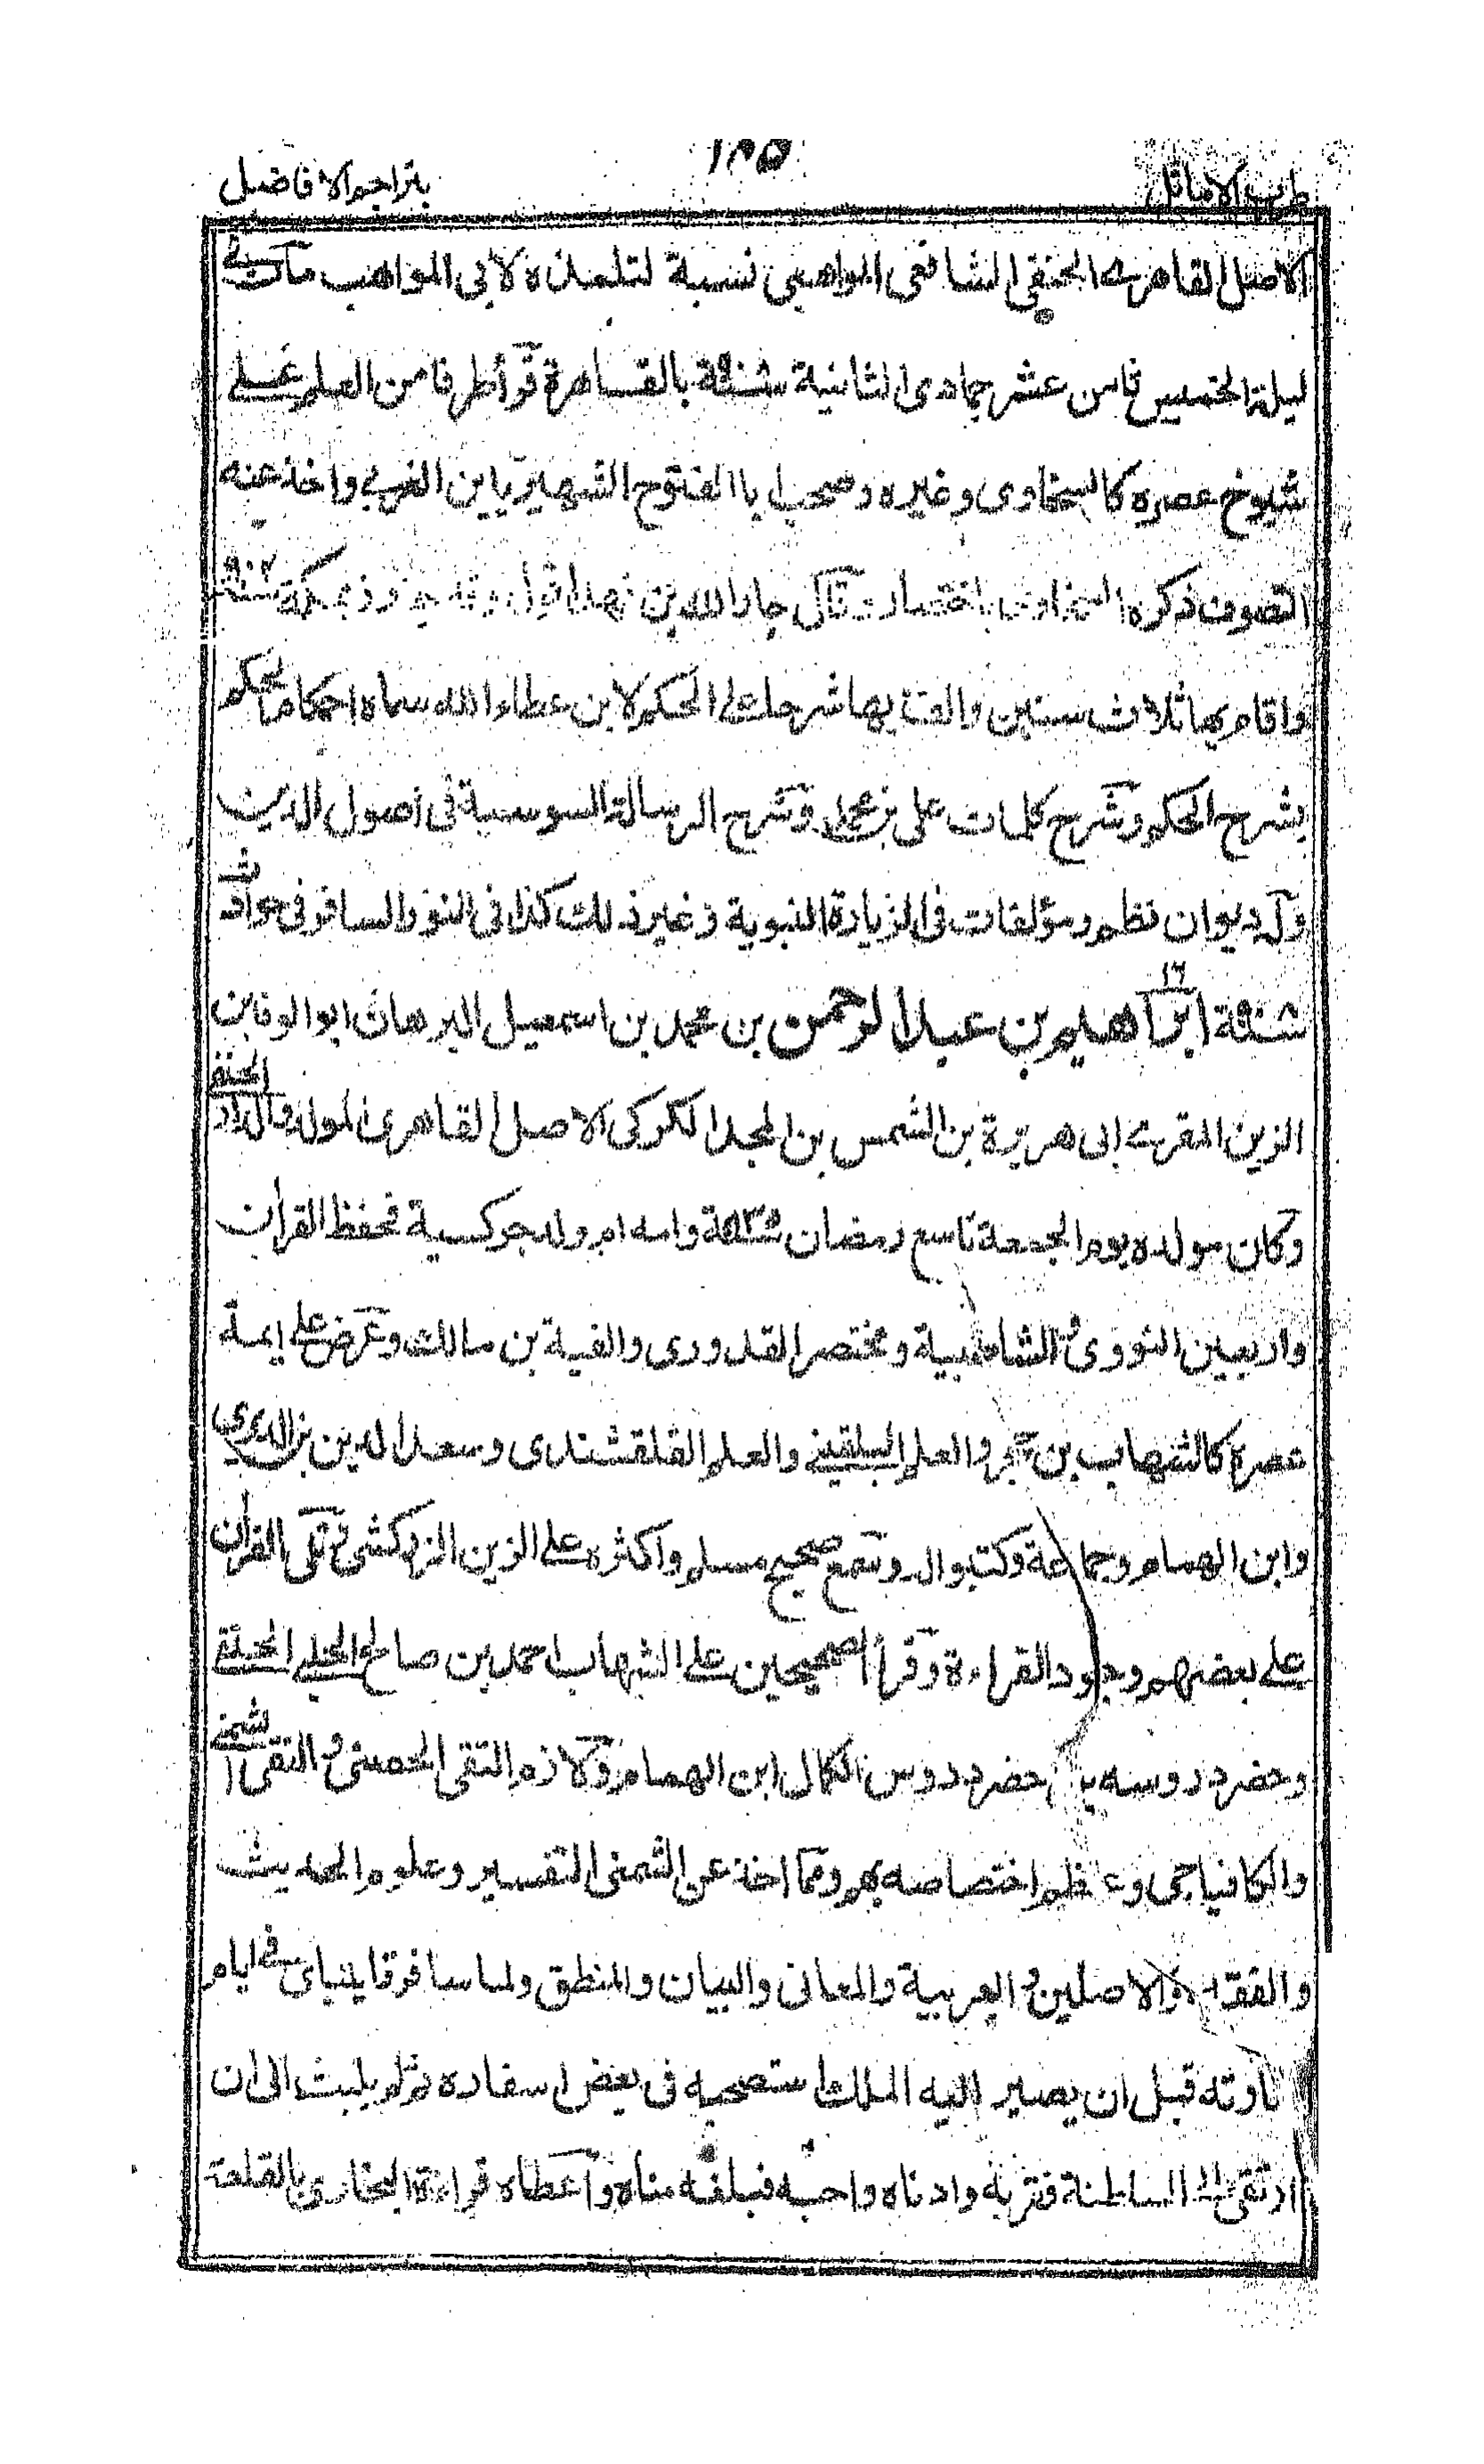 طرب الاماثل ١٨٥ بتراجم الافاضل
الاصل القاهرى الحنفى الشافعى المواهبى نسبة لتلمذه لابى المواهب مات فى
ليلة الخميس ثامن عشر جمادى الثانية سنة بالقاهرة وقرأ طرفا من العلم على
شيوخ عصره كالسخاوى وغيره وصحب ابا الفتوح الشهير بابن المغربى واخذ عنه
التصوف ذكره السخاوى باختصار وقال جار الله بن فهد اقول وقد مكة سنة ٩٠٤
واقام بها ثلاث سنين والف بها شرحا على الحكم لابن عطاء الله سماه احكام الحكم
بشرح الحكم وشرح كلمات على بن محمد وشرح الرسالة السنوسية فى اصول الدين
وله ديوان نظم ومؤلفات فى الزيارة النبوية وغير ذلك كذا فى النور السافر فى حوادث
سنة ابراهيم بن عبد الرحمن بن محمد بن اسمعيل البرهان ابو الوفا بن
الزين المقرى ابى هريرة بن الشمس بن المجد الكركى الاصل القاهرى المولد والدار الحنفى
وكان مولده يوم الجمعة تاسع رمضان سنة ٨٣٥ وامه ام ولد جركسية فحفظ القرآن
واربعين النووى والشاطبية ومختصر القدورى والفية بن مالك وعرض على ايمة
عصره كالشهاب بن حجر والعلم البلقينى والعلم القلقشندى وسعد الدين بن الديرى
وابن الهمام وجماعة وكتبوا له وسمع صحيح مسلم واكثره على الزين الزركشى وتلى القرآن
على بعضهم وجود القراءة وقرأ الصحيحين على الشهاب احمد بن صالح الحلبى الحنفى
وحضر دروسه بل حضر دروس الكمال ابن الهمام ولازم التقى الحصنى والتقى الشمنى
والكافياجى وعظم اختصاصه بهم ومما اخذ عن الشمنى التفسير وعلوم الحديث
والفقه والاصلين والعربية والمعانى والبيان والمنطق ولما سافر قايتباى فى ايام
قبل ان يصير اليه الملك استصحبه فى بعض اسفاره ثم لم يلبث الى ان
ارتقى الى السلطنة فقربه وادناه واحبه فبلغه مناه واعطاه قراءة البخارى بالقلعة